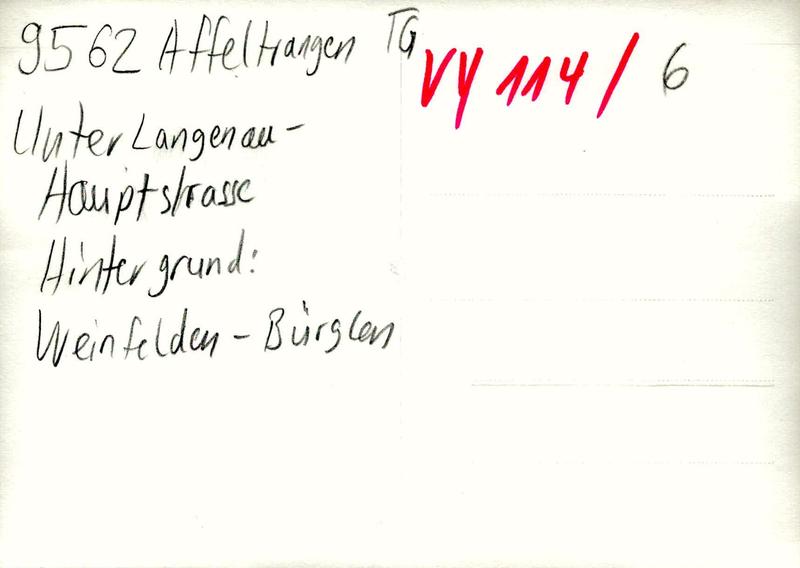 9562 Affeltrangen TG
VY 114 / 6
Unter Langenau-
Hauptstrasse
Hintergrund:
Weinfelden - Bürglen